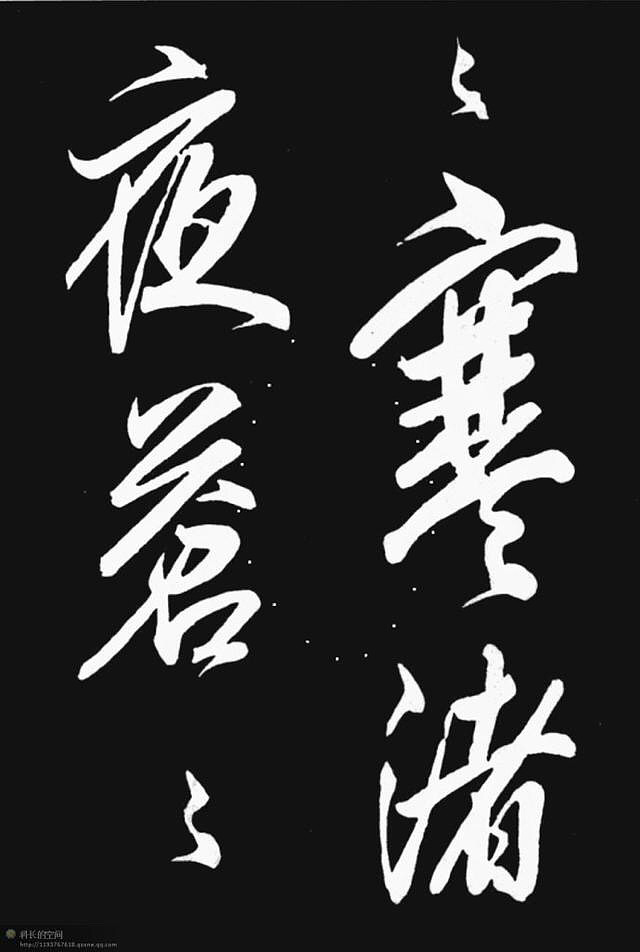 々寒渚
夜蒼々
科长的空间
http://1193767618.qzone.qq.com